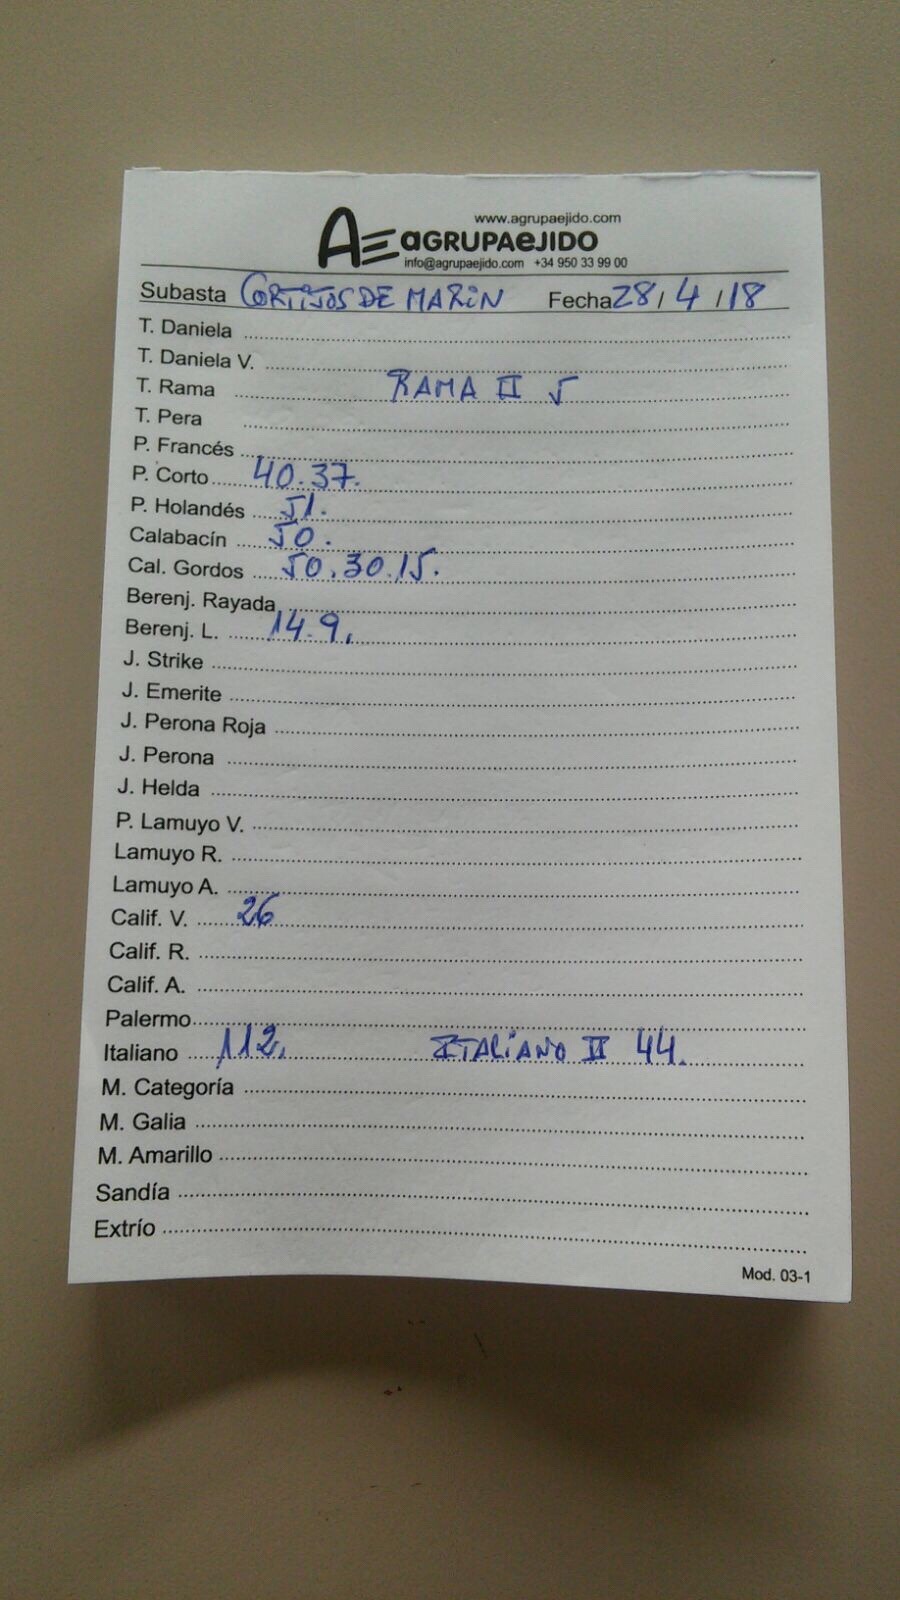 www.agrupaejido.com
AE AGRUPAEJIDO
info@agrupaejido.com +34 950 33 99 00
Subasta CORTIJOS DE MARIN Fecha 28 / 4 / 18
T. Daniela
T. Daniela V.
T. Rama RAMA II 5
T. Pera
P. Francés
P. Corto 40.37.
P. Holandés 51.
Calabacín 50.
Cal. Gordos 50.30.15.
Berenj. Rayada
Berenj. L. 14.9.
J. Strike
J. Emerite
J. Perona Roja
J. Perona
J. Helda
P. Lamuyo V.
Lamuyo R.
Lamuyo A.
Calif. V. 26
Calif. R.
Calif. A.
Palermo
Italiano 112. ITALIANO II 44.
M. Categoría
M. Galia
M. Amarillo
Sandía
Extrío
Mod. 03-1